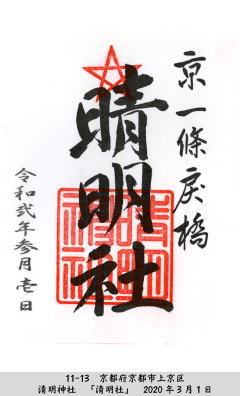 京一條戻橋
晴明社
令和弐年参月壱日
11-13 京都府京都市上京区
清明神社 「清明社」 2020年3月1日